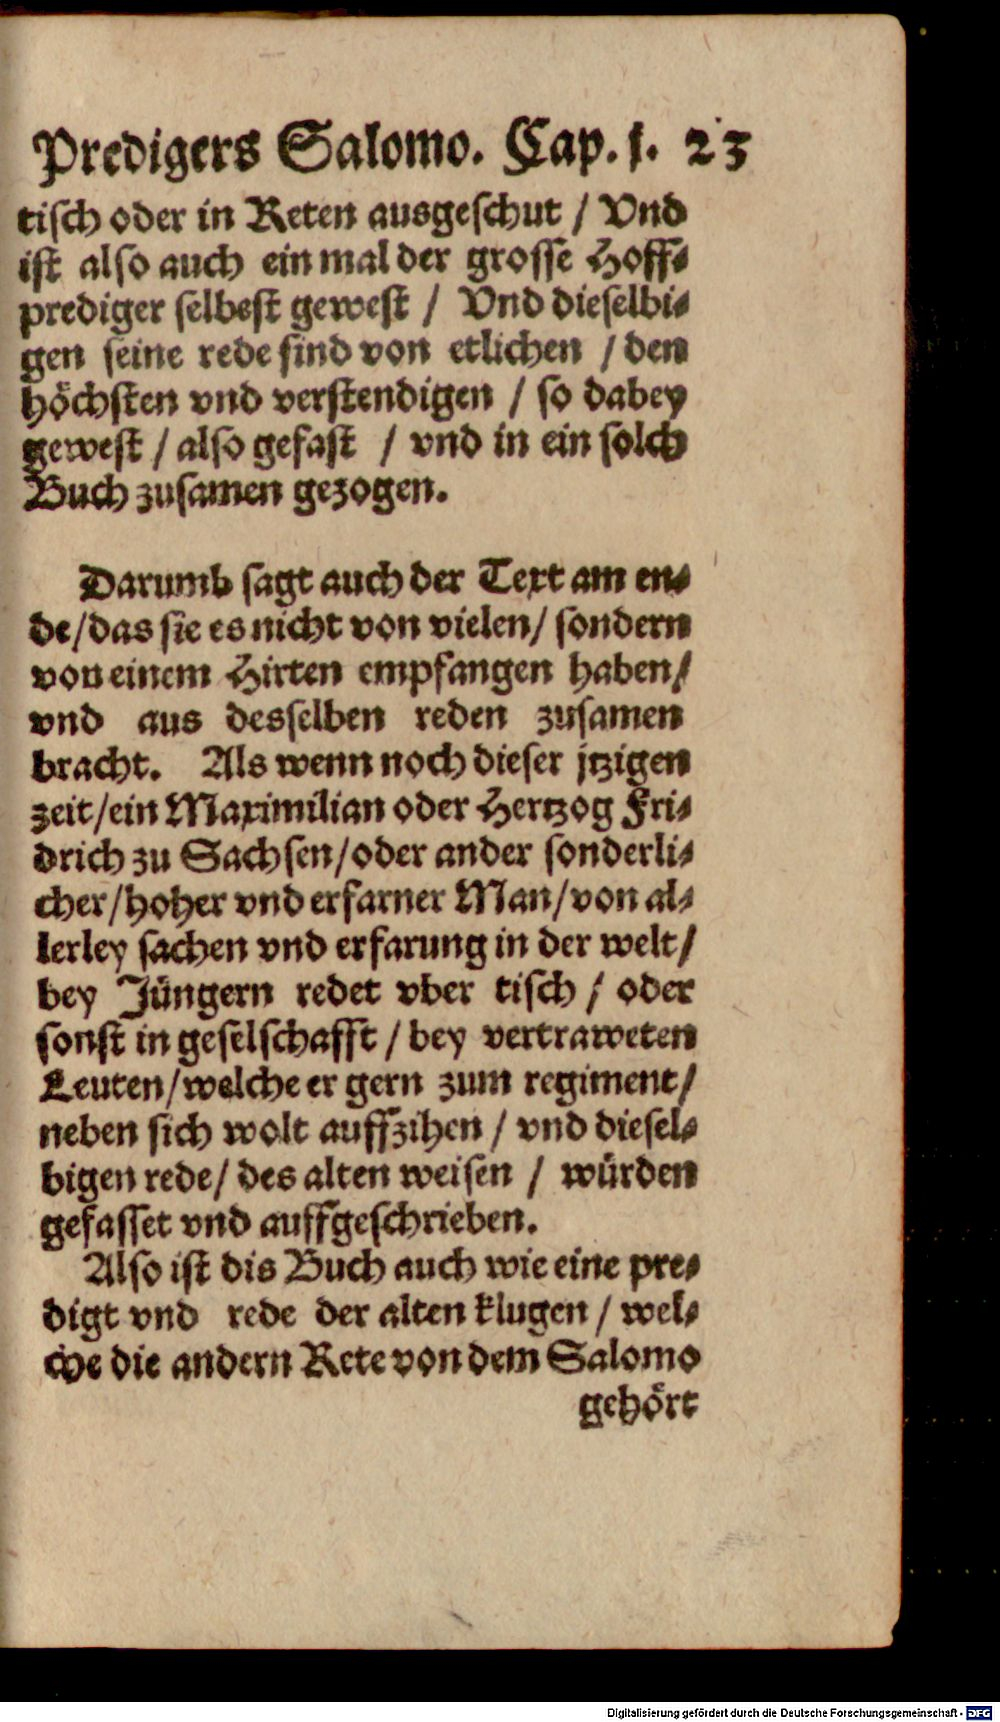 Predigers Salomo. Cap. j. 23
tisch oder in Reten ausgeschut / Vnd
ist also auch ein mal der grosse Hoff-
prediger selbest gewest / Vnd dieselbi-
gen seine rede sind von etlichen / den
höchsten vnd verstendigen / so dabey
gewest / also gefast / vnd in ein solch
Buch zusamen gezogen.
Darumb sagt auch der Text am en-
de/das sie es nicht von vielen/ sondern
von einem Hirten empfangen haben/
vnd aus desselben reden zusamen
bracht. Als wenn noch dieser jtzigen
zeit/ein Maximilian oder Hertzog Fri-
drich zu Sachsen/oder ander sonderli-
cher/hoher vnd erfarner Man/von al-
lerley sachen vnd erfarung in der welt/
bey Jüngern redet vber tisch / oder
sonst in geselschafft / bey vertraweten
Leuten/welche er gern zum regiment/
neben sich wolt auffzihen / vnd diesel-
bigen rede/ des alten weisen / würden
gefasset vnd auffgeschrieben.
Also ist dis Buch auch wie eine pre-
digt vnd rede der alten klugen / wel-
che die andern Rete von dem Salomo
gehört
Digitalisierung gefördert durch die Deutsche Forschungsgemeinschaft - DFG